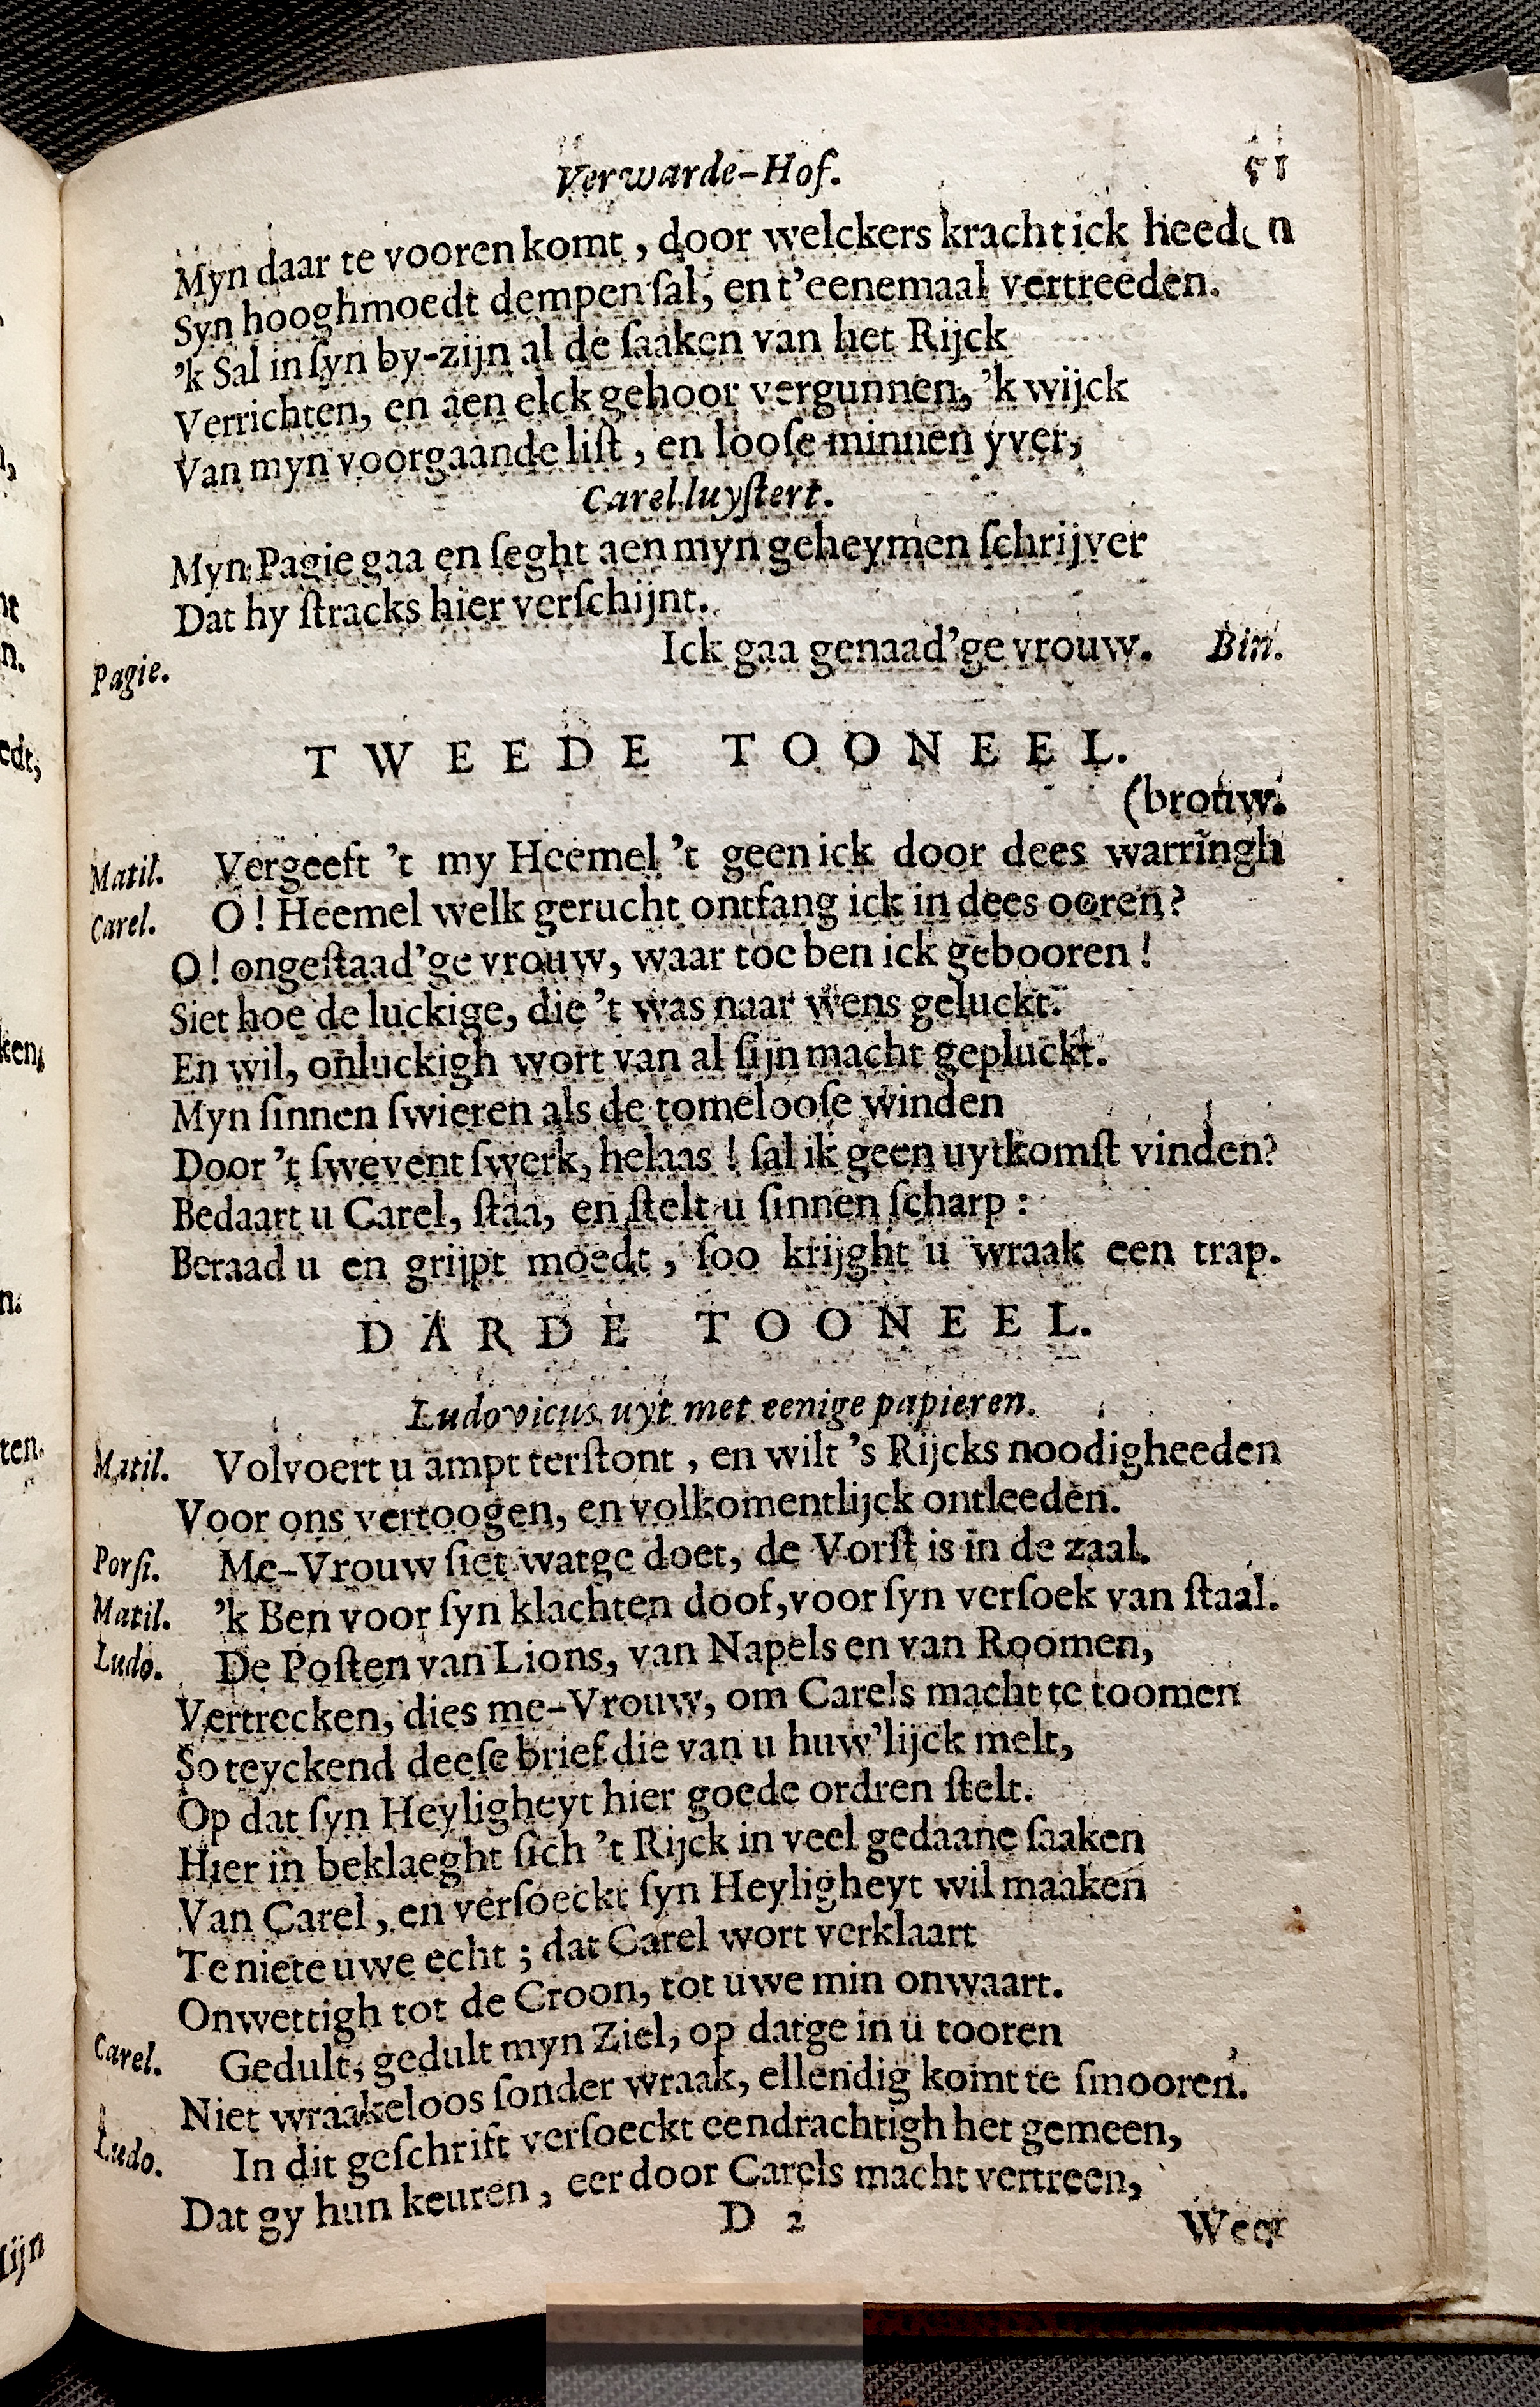 Verwarde-Hof. 51
Myn daar te vooren komt, door welckers kracht ick heeden
Syn hooghmoedt dempen ſal, en t'eenemaal vertreeden.
'k Sal in ſyn by-zijn al de ſaaken van het Rijck
Verrichten, en aen elck gehoor vergunnen, 'k wijck
Van myn voorgaande liſt, en looſe minnen yver,
Carel luyſtert.
Myn Pagie gaa en ſeght aen myn geheymen ſchrijver
Dat hy ſtracks hier verſchijnt.
Pagie. Ick gaa genaad'ge vrouw. Bin.
TWEEDE TOONEEL.
(brouw.
Matil. Vergeeft 't my Heemel 't geen ick door dees warringh
Carel. O! Heemel welk gerucht ontfang ick in dees ooren?
O! ongeſtaad'ge vrouw, waar toe ben ick gebooren!
Siet hoe de luckige, die 't was naar wens geluckt.
En wil, onluckigh wort van al ſijn macht gepluckt.
Myn ſinnen ſwieren als de tomelooſe winden
Door 't ſwevent ſwerk, helaas! ſal ik geen uytkomſt vinden?
Bedaart u Carel, ſtaa, en ſtelt u ſinnen ſcharp:
Beraad u en grijpt moedt, ſoo krijght u wraak een trap.
DARDE TOONEEL.
Ludovicus uyt met eenige papieren.
Matil. Volvoert u ampt terſtont, en wilt 's Rijcks noodigheeden
Voor ons vertoogen, en volkomentlijck ontleeden.
Porſi. Me-Vrouw ſiet watge doet, de Vorſt is in de zaal.
Matil. 'k Ben voor ſyn klachten doof, voor ſyn verſoek van ſtaal.
Ludo. De Poſten van Lions, van Napels en van Roomen,
Vertrecken, dies me-Vrouw, om Carels macht te toomen
So teyckend deeſe brief die van u huw'lijck melt,
Op dat ſyn Heyligheyt hier goede ordren ſtelt.
Hier in beklaeght ſich 't Rijck in veel gedaane ſaaken
Van Carel, en verſoeckt ſyn Heyligheyt wil maaken
Te niete uwe echt; dat Carel wort verklaart
Onwettigh tot de Croon, tot uwe min onwaart.
Carel. Gedult, gedult myn Ziel, op datge in u tooren
Niet wraakeloos ſonder wraak, ellendig komt te ſmooren.
Ludo. In dit geſchrift verſoeckt eendrachtigh het gemeen,
Dat gy hun keuren, eer door Carels macht vertreen,
D 2 Weer